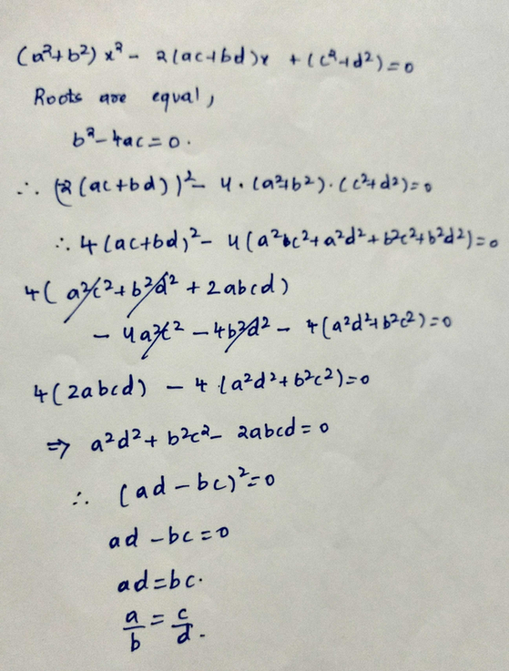 (a²+b²)x² - 2(ac+bd)x + (c²+d²)=0
Roots are equal,
b²-4ac=0.
∴ (2(ac+bd))² - 4.(a²+b²).(c²+d²)=0
∴ 4(ac+bd)² - 4(a²c²+a²d²+b²c²+b²d²)=0
4(a²c²+b²d²+2abcd)
- 4a²c² - 4b²d² - 4(a²d²+b²c²)=0
4(2abcd) - 4(a²d²+b²c²)=0
⇒ a²d²+b²c²-2abcd=0
∴ (ad-bc)²=0
ad-bc=0
ad=bc.
a/b = c/d.